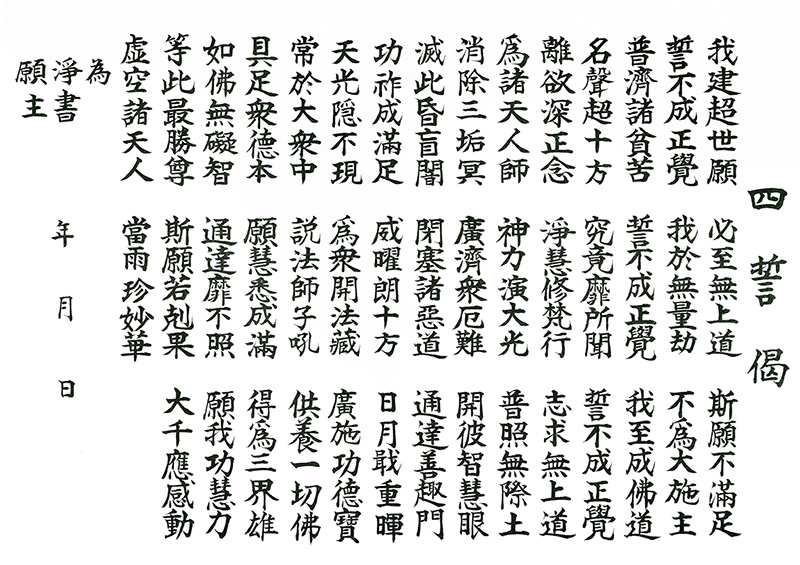 四誓偈
我建超世願 必至無上道 斯願不滿足
誓不成正覺 我於無量劫 不爲大施主
普濟諸貧苦 誓不成正覺 我至成佛道
名聲超十方 究竟靡所聞 誓不成正覺
離欲深正念 淨慧修梵行 志求無上道
爲諸天人師 神力演大光 普照無際土
消除三垢冥 廣濟衆厄難 開彼智慧眼
滅此昏盲闇 閉塞諸惡道 通達善趣門
功祚成滿足 威曜朗十方 日月戢重暉
天光隠不現 爲衆開法藏 廣施功德寶
常於大衆中 説法師子吼 供養一切佛
具足衆德本 願慧悉成滿 得爲三界雄
如佛無礙智 通達靡不照 願我功慧力
等此最勝尊 斯願若剋果 大千應感動
虚空諸天人 當雨珍妙華
為
淨書 年 月 日
願主